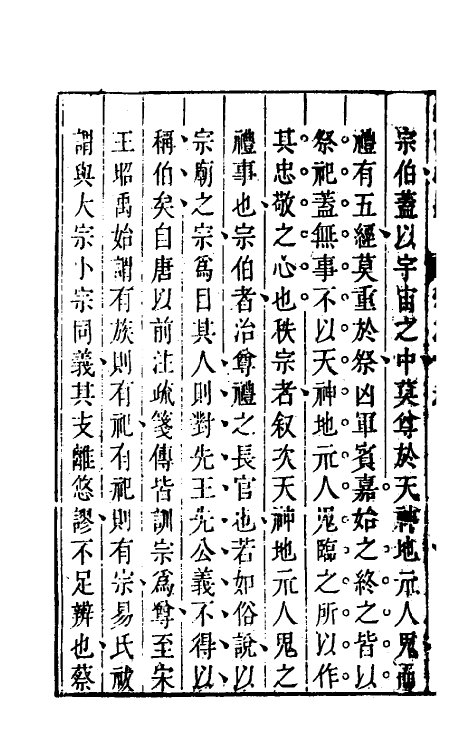 宗伯蓋以宇宙之中莫尊於天神地元人鬼而
禮有五經莫重於祭凶軍賓嘉始之終之皆以
祭祀蓋無事不以天神地元人鬼臨之所以作
其忠敬之心也秩宗者叙次天神地元人鬼之
禮事也宗伯者冶尊禮之長官也若如俗說以
宗廟之宗爲目其人則對先王先公義不得以
稱伯矣自唐以前注疏箋傳皆訓宗爲尊至宋
王昭禹始謂有族則有祀有祀則有宗易氏祓
謂與大宗小宗同義其支離悠謬不足辨也蔡